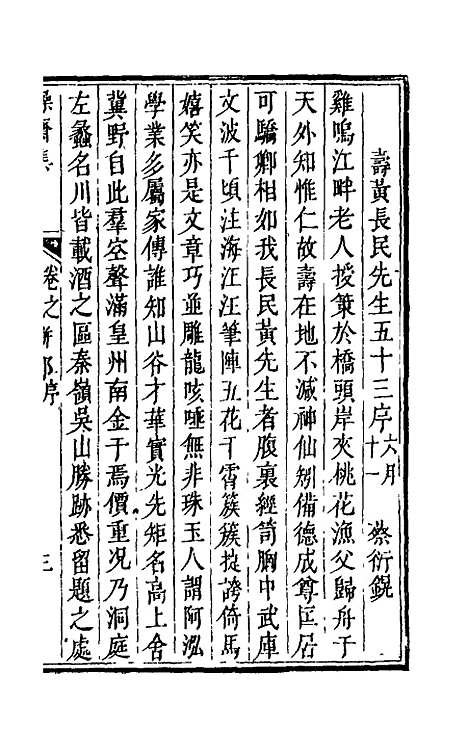 壽黃長民先生五十三序六月十一 蔡衍鎤
雞鳴江畔老人授策於橋頭岸夾桃花漁父歸舟于
天外知惟仁故壽在地不減神仙矧備德成尊匡居
可驕卿相如我長民黃先生者腹裏經笥胸中武庫
文波千頃注海汪汪筆陣五花干霄簇簇掟誇倚馬
嬉笑亦是文章巧並雕龍咳唾無非珠玉人謂阿泓
學業多屬家傳誰知山谷才華實光先矩名高上舍
冀野自此羣空聲滿皇州南金于焉價重况乃洞庭
左蠡名川皆載酒之區秦嶺吳山勝跡悉留題之處
操齋集
卷之 序
三